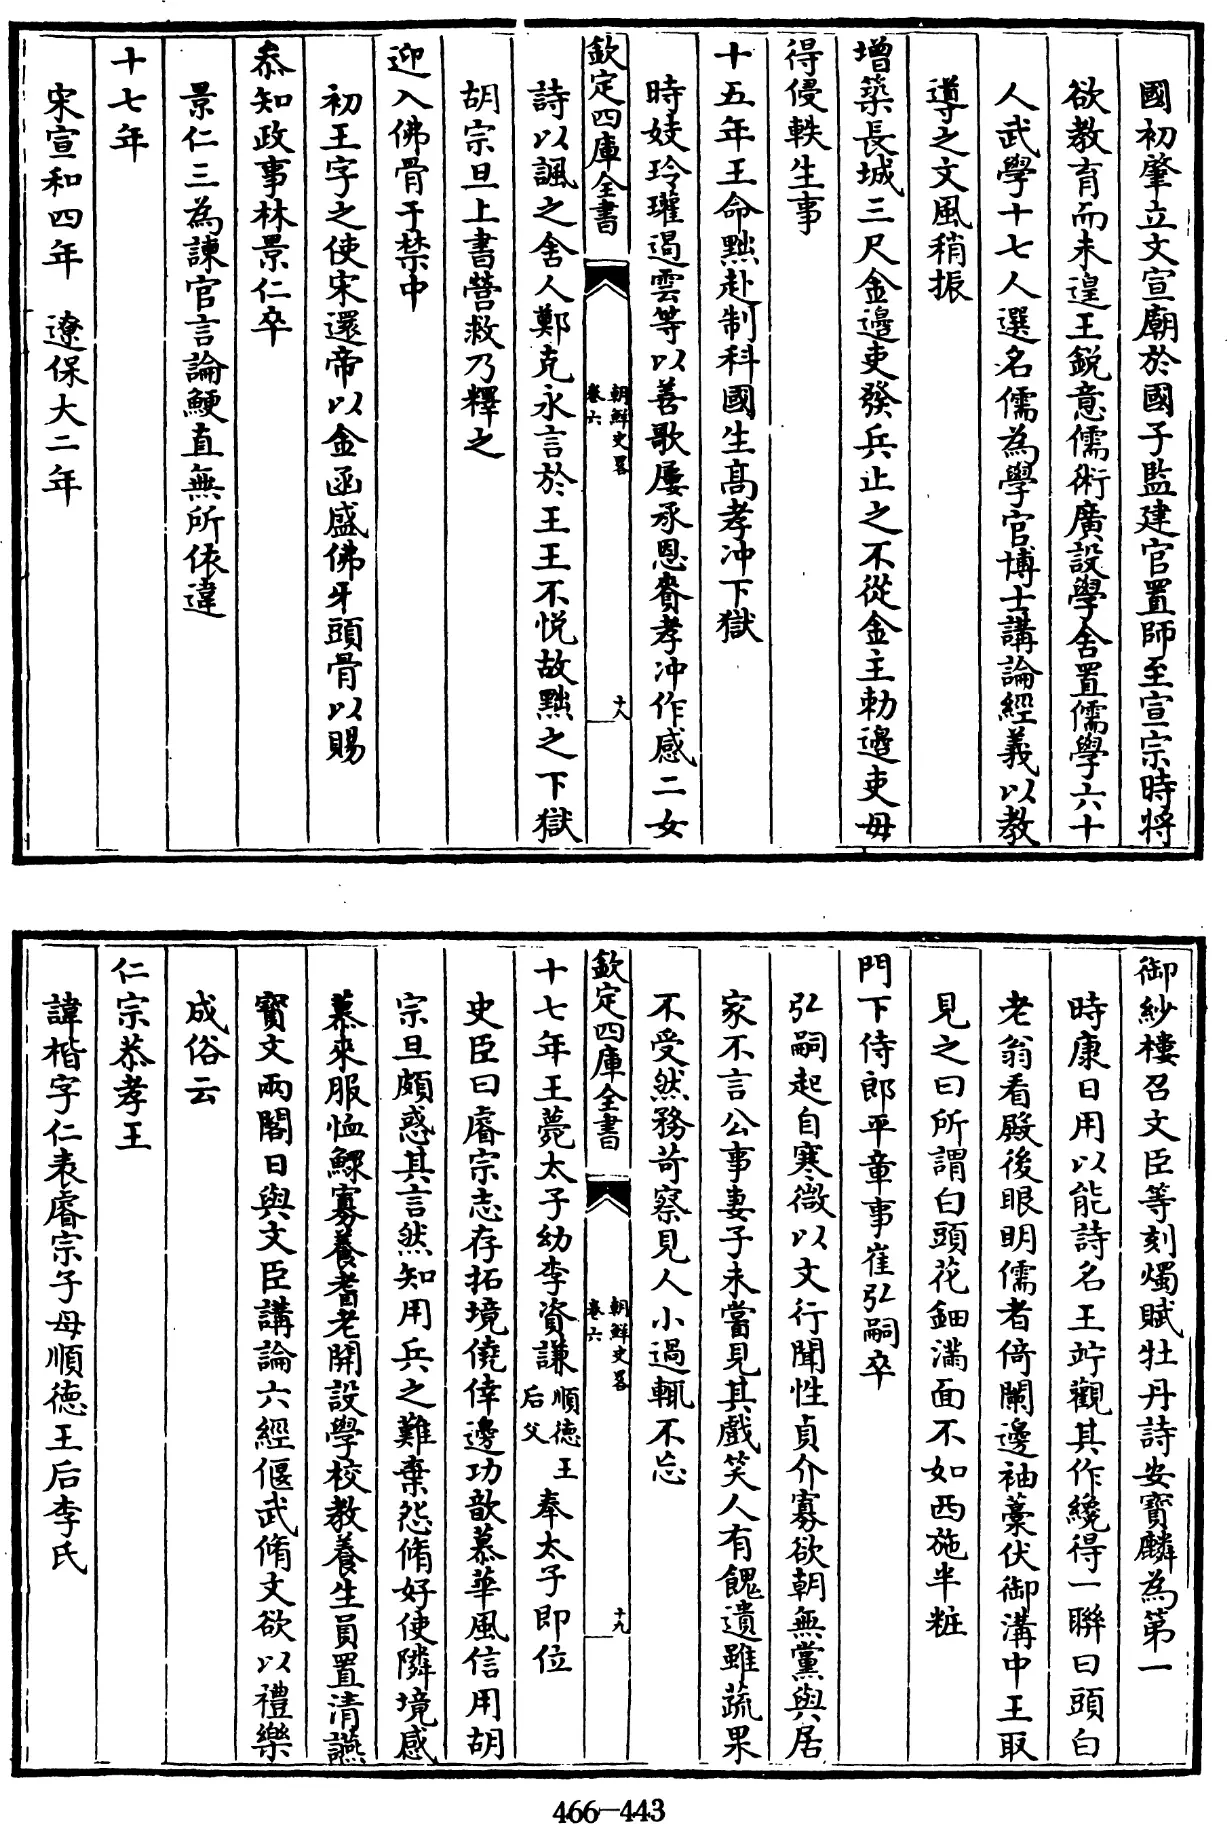 國初肇立文宣廟於國子監建官置師至宣宗時將
欲教育而未遑王鋭意儒術廣設學舍置儒學六十
人武學十七人選名儒為學官博士講論經義以教
導之文風稍振
增築長城三尺金邊吏發兵止之不從金主勅邊吏毋
得侵軼生事
十五年王命黜赴制科國生髙孝冲下獄
時妓玲瓏遏雲等以善歌屢承恩賚孝冲作感二女
欽定四庫全書
朝鮮史畧
卷六
十八
詩以諷之舍人鄭克永言於王王不悦故黜之下獄
胡宗旦上書營救乃釋之
迎入佛骨于禁中
初王字之使宋還帝以金函盛佛牙頭骨以賜
叅知政事林景仁卒
景仁三為諫官言論鯁直無所依違
十七年
宋宣和四年 遼保大二年
御紗樓召文臣等刻燭賦牡丹詩安寳麟為第一
時康日用以能詩名王竚觀其作纔得一聯曰頭白
老翁看殿後眼明儒者倚闌邊袖藁伏御溝中王取
見之曰所謂白頭花鈿滿面不如西施半粧
門下侍郎平章事崔弘嗣卒
弘嗣起自寒微以文行聞性貞介寡欲朝無黨與居
家不言公事妻子未嘗見其戲笑人有餽遺雖蔬果
不受然務苛察見人小過輒不忘
欽定四庫全書
朝鮮史畧
卷六
十九
十七年王薨太子幼李資謙順德王后父奉太子即位
史臣曰睿宗志存拓境僥倖邊功歆慕華風信用胡
宗旦頗惑其言然知用兵之難棄怨脩好使隣境感
慕來服恤鰥寡養耆老開設學校教養生員置清讌
寳文兩閣日與文臣講論六經偃武脩文欲以禮樂
成俗云
仁宗恭孝王
諱楷字仁表睿宗子母順德王后李氏
466-443